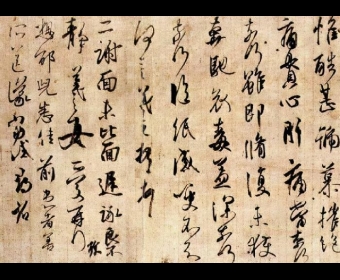 惟酷甚號慕摧絕
痛貫心肝痛當奈何
奈何雖即脩復未獲
奔馳哀毒益深奈何
奈何臨紙感哽不知
何言羲之頓首
二謝面未比面遲詠良
靜羲之女愛再拜
想邵兒悉佳前患者善